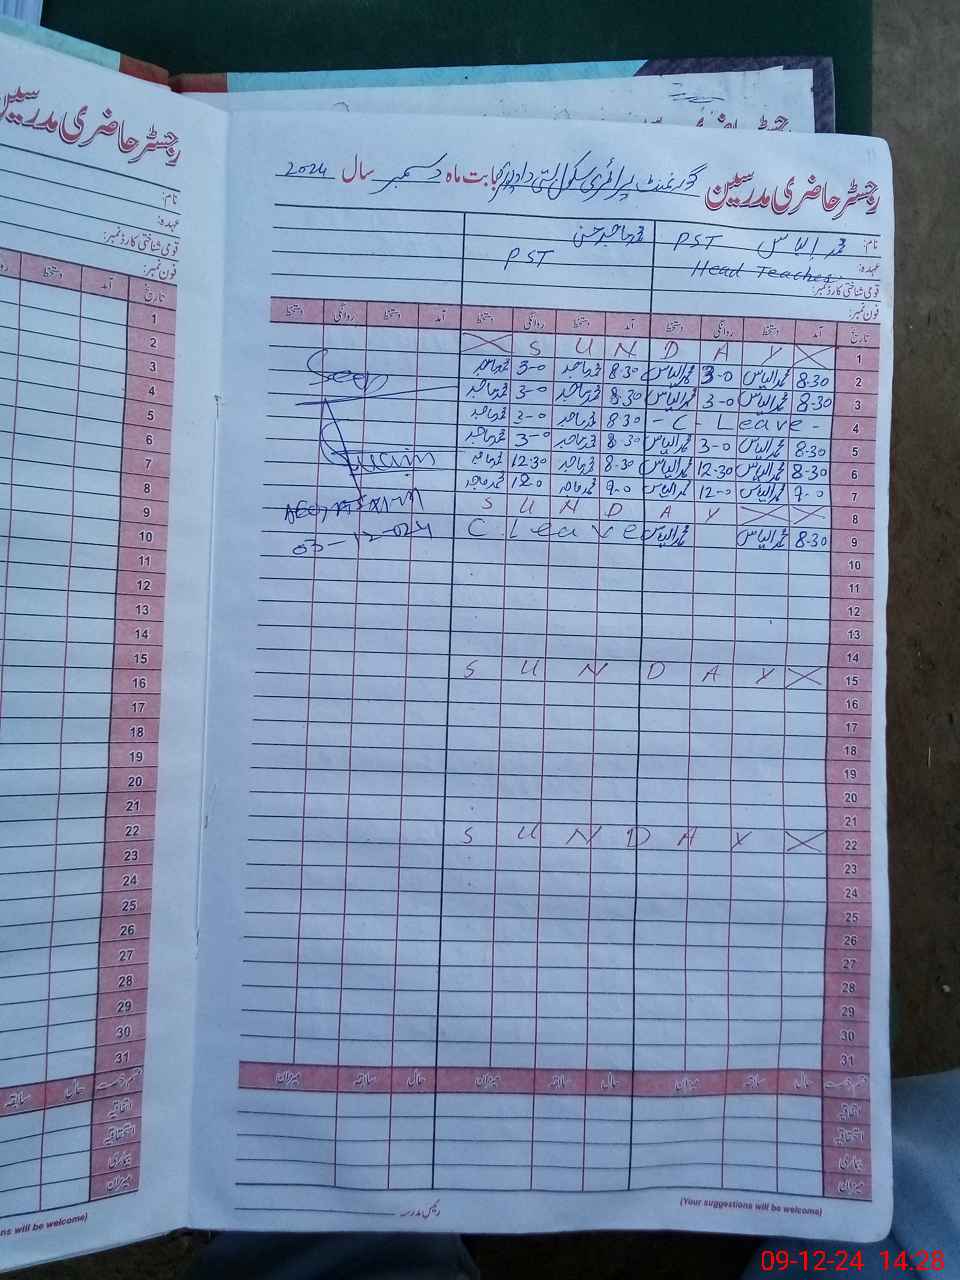 رجسٹر حاضری مدرسین
نام:
عہدہ:
قومی شناختی کارڈ نمبر:
فون نمبر:
تاریخ آمد دستخط
1
2
3
4
5
6
7
8
9
10
11
12
13
14
15
16
17
18
19
20
21
22
23
24
25
26
27
28
29
30
31
حال سابقہ
اتفاقیہ
استحقاقیہ
بیماری
میزان
رجسٹر حاضری مدرسین گورنمنٹ پرائمری سکول بستی بابت ماہ دسمبر سال 2024
نام: محمد الیاس PST
عہدہ: Head Teacher PST
قومی شناختی کارڈ نمبر:
فون نمبر:
تاریخ آمد دستخط روانگی دستخط آمد دستخط روانگی دستخط آمد دستخط روانگی دستخط
1 S U N D A Y
2 8-30 محمد الیاس 3-0 محمد الیاس 8-30 3-0
3 8-30 محمد الیاس 3-0 محمد الیاس 8-30 3-0
4 - C - Leave - 8-30 3-0
5 8-30 محمد الیاس 3-0 محمد الیاس 8-30 3-0
6 8-30 محمد الیاس 12-30 محمد الیاس 8-30 12-30
7 9-0 محمد الیاس 12-0 محمد الیاس 9-0 12-0
8 S U N D A Y
9 8-30 محمد الیاس محمد الیاس C. Leave
10
11
12
13
14
15 S U N D A Y
16
17
18
19
20
21
22 S U N D A Y
23
24
25
26
27
28
29
30
31
Seen
03-12-024
حال سابقہ میزان حال سابقہ میزان حال سابقہ میزان
اتفاقیہ
استحقاقیہ
بیماری
میزان
رئیس مدرسہ
(Your suggestions will be welcome)
ns will be welcome)
09-12-24 14:28